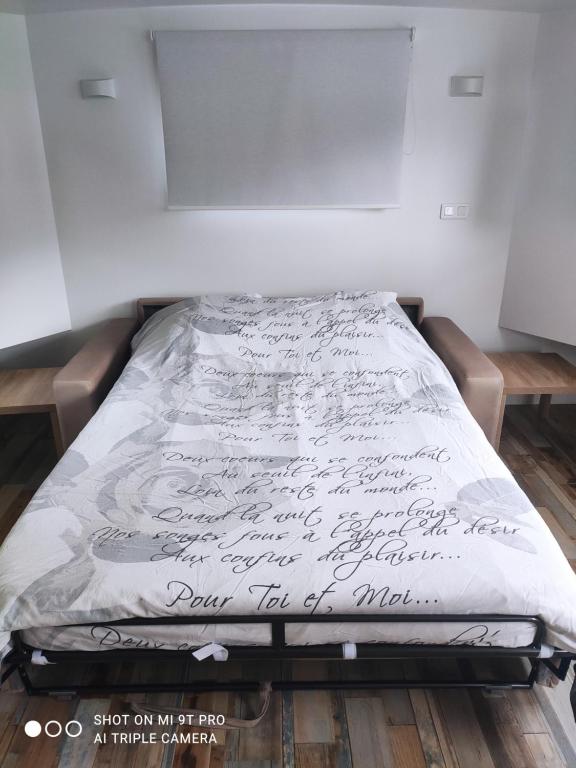 Loin du reste du monde
Quand la nuit se prolonge
Nos songes fous à l'appel du désir
Aux confins du plaisir...
Pour Toi et Moi...
Deux coeurs qui se confondent
Au seuil de l'infini,
Loin du reste du monde...
Quand la nuit se prolonge
Nos songes fous à l'appel du désir
Aux confins du plaisir...
Pour Toi et Moi...
Deux coeurs qui se confondent
Au seuil de l'infini,
Loin du reste du monde...
Quand la nuit se prolonge
Nos songes fous à l'appel du désir
Aux confins du plaisir...
Pour Toi et Moi...
Deux confondent
SHOT ON MI 9T PRO
AI TRIPLE CAMERA